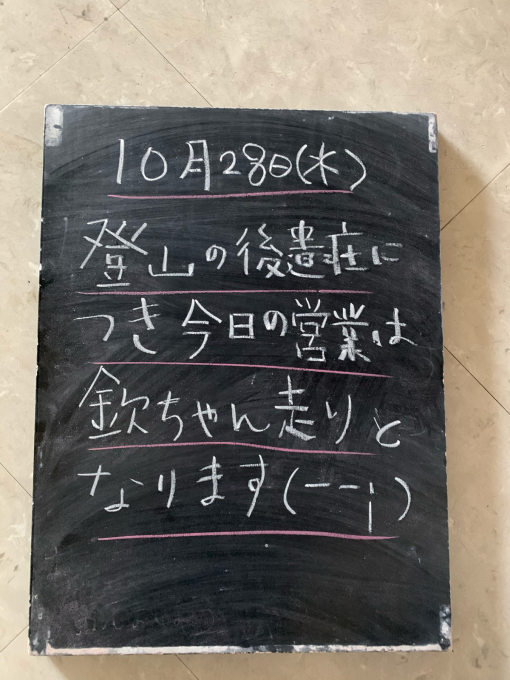 10月28日(水)
登山の後遺症に
つき今日の営業は
欽ちゃん走りと
なります(ーー;)